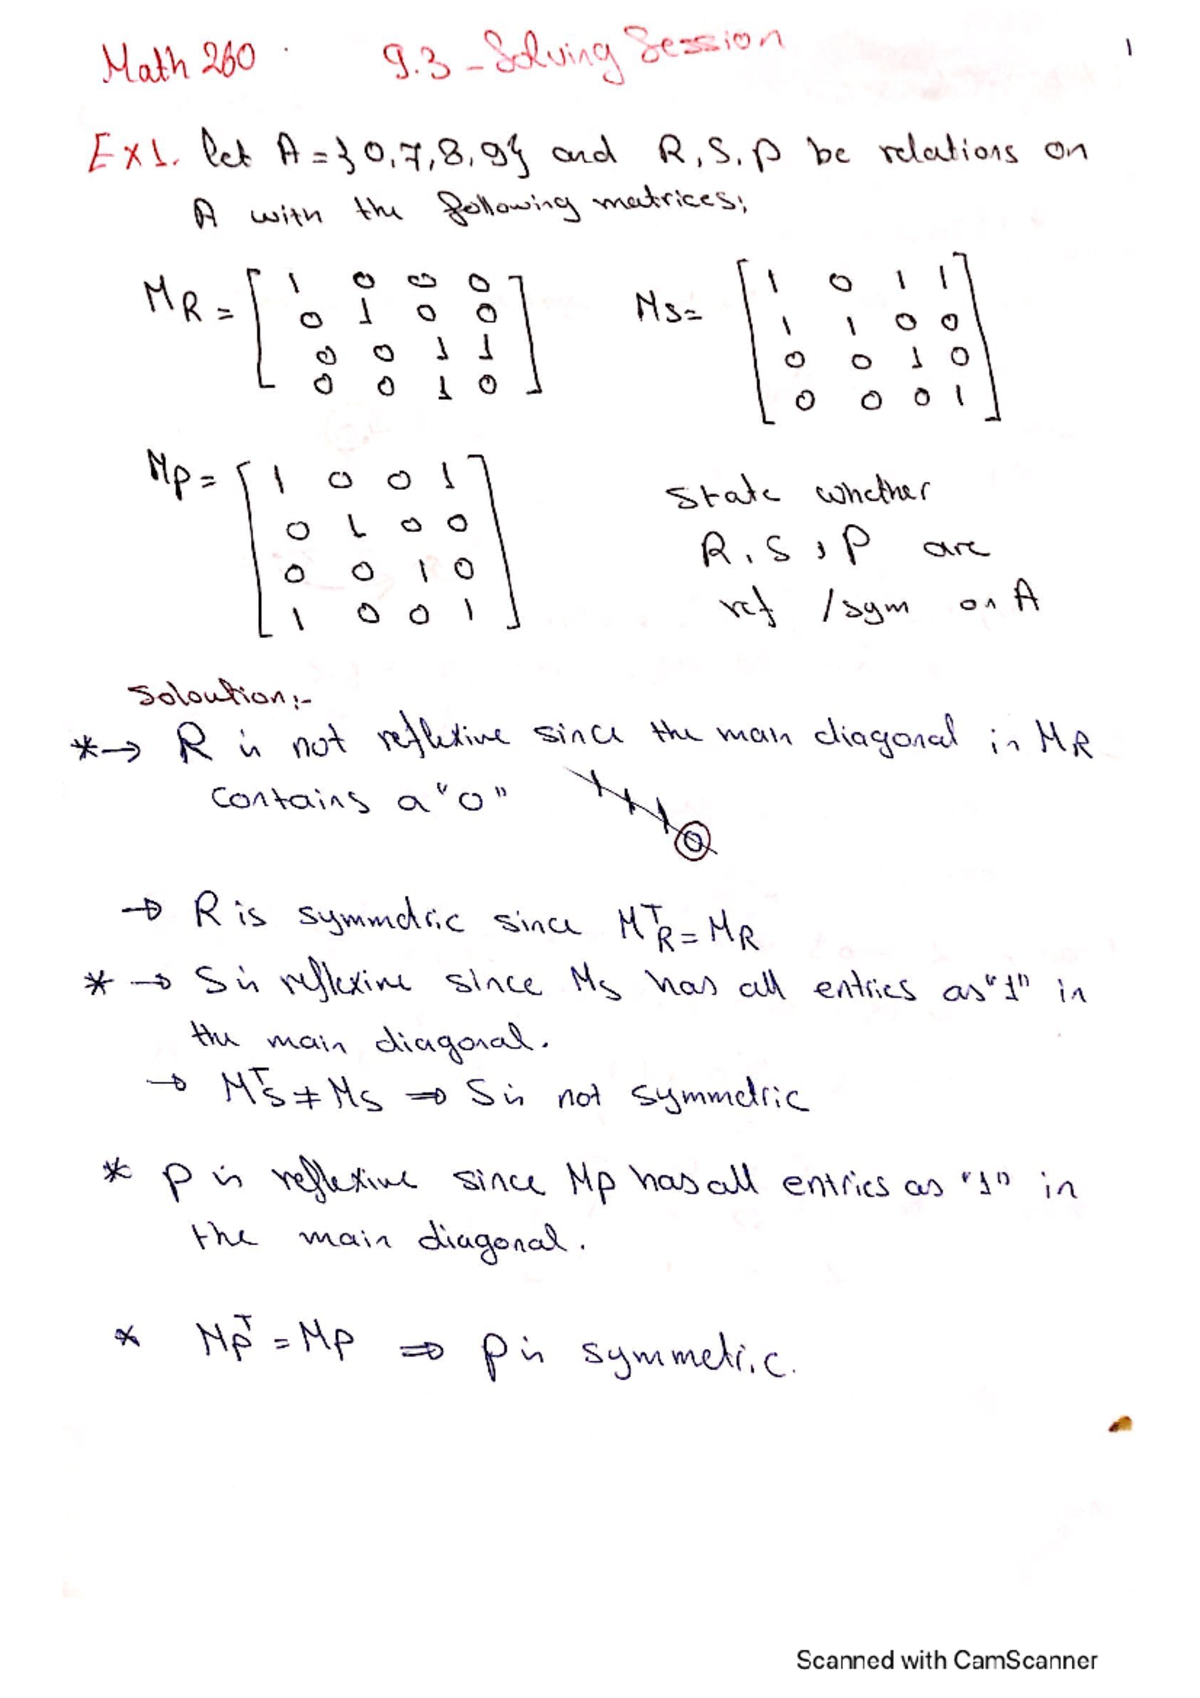 Math 260 9.3 - Solving Session 1
Ex1. let A = {0,7,8,9} and R, S, P be relations on
A with the following matrices;
MR = [ 1 0 0 0 MS = [ 1 0 1 1
0 1 0 0 1 1 0 0
0 0 1 1 0 0 1 0
0 0 1 0 ] 0 0 0 1 ]
MP = [ 1 0 0 1
0 1 0 0
0 0 1 0
1 0 0 1 ]
State whether
R, S, P are
ref / sym on A
Soloution:-
* → R is not reflexive since the main diagonal in MR
contains a "0"
0
→ R is symmetric since M^T_R = MR
* → S is reflexive since MS has all entries as "1" in
the main diagonal.
→ M^T_S ≠ MS ⇒ S is not symmetric
* P is reflexive since MP has all entries as "1" in
the main diagonal.
* MP^T = MP ⇒ P is symmetric.
Scanned with CamScanner